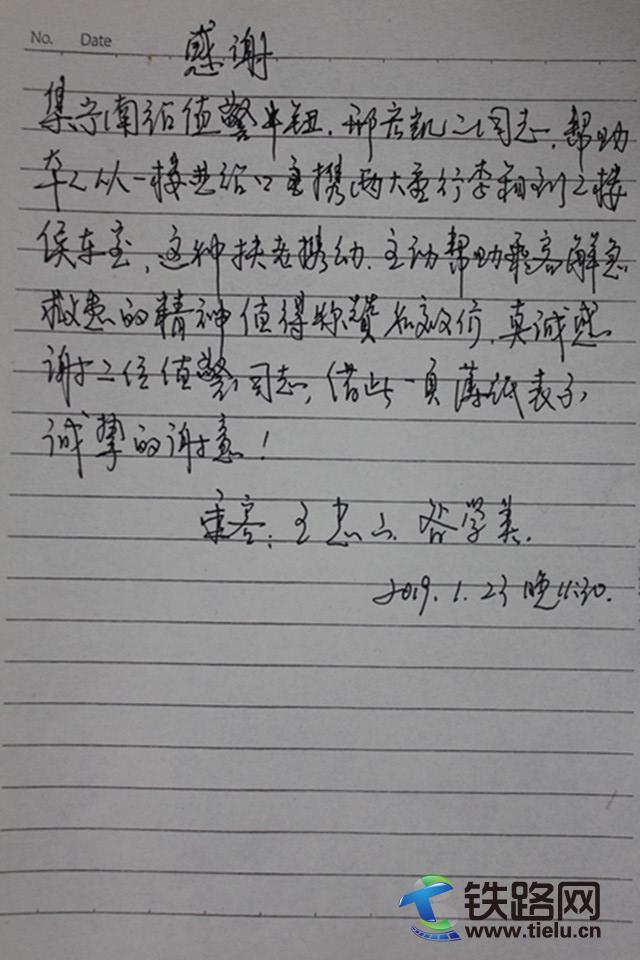 No. Date
感谢
集宁南站值警牛钮、邢宏凯二同志,帮助
本人从一楼进站口重携两大重行李箱到二楼
侯车室,这种扶老携幼、主动帮助乘客解急
救患的精神值得称赞和效仿,真诚感
谢二位值警同志,借此一页薄纸表示
诚挚的谢意!
乘客:王忠山 谷学美.
2019.1.23晚11:30.
铁路网
www.tielu.cn